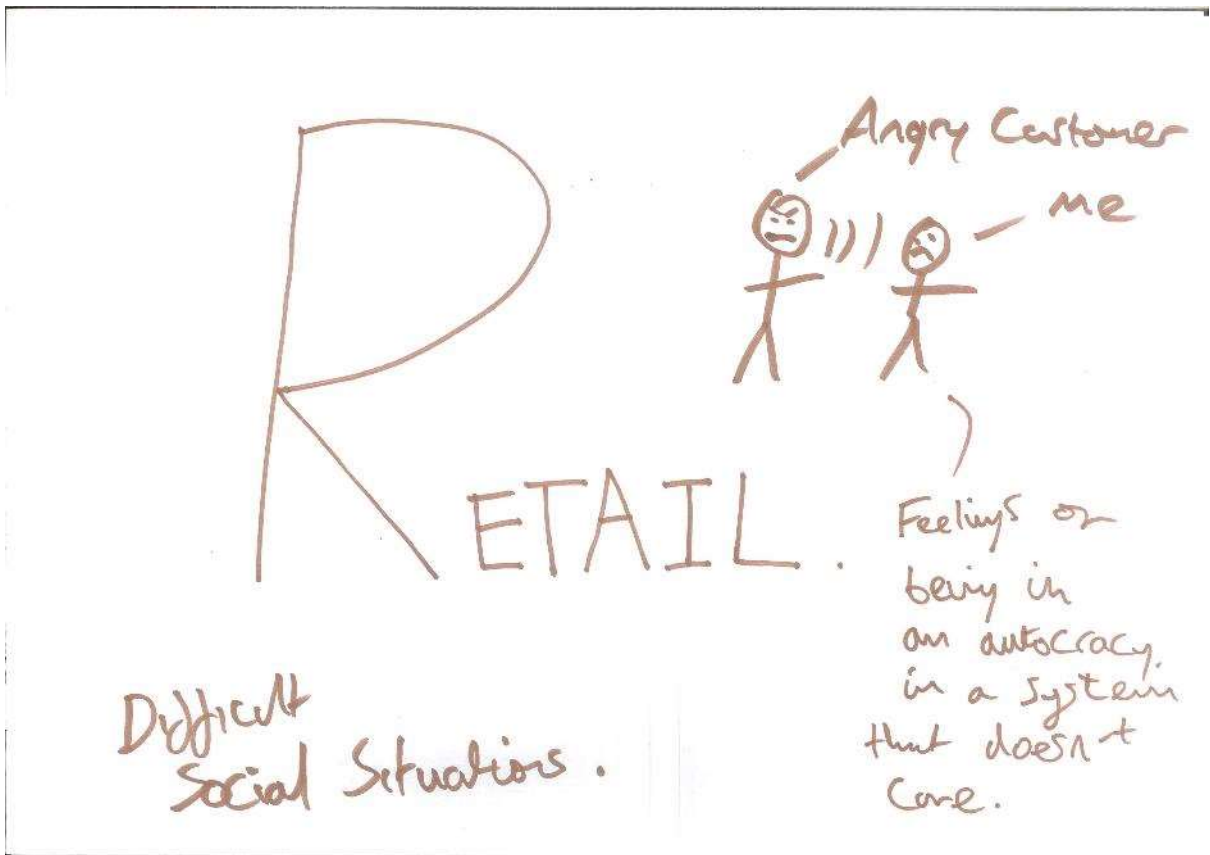 Angry Customer
me
RETAIL.
Feelings of
being in
an autocracy,
in a system
that doesn't
care.
Difficult
Social Situations.